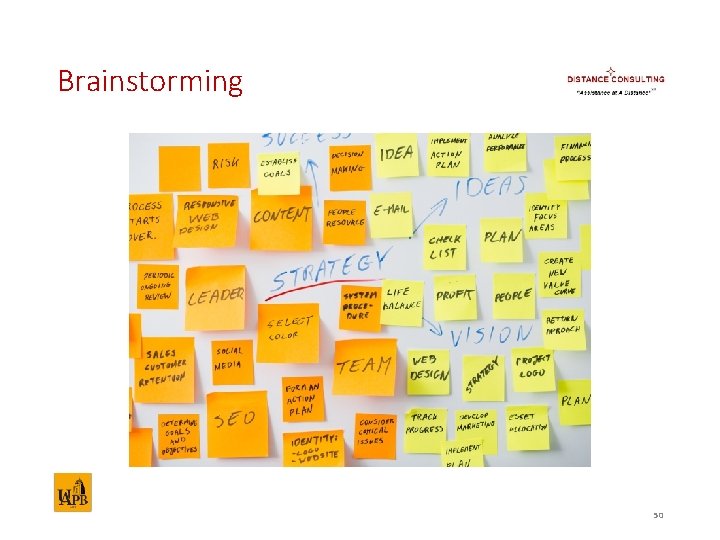 Brainstorming
DISTANCE CONSULTING
"Assistance at A Distance" SM
SUCCESS
RISK
ESTABLISH
GOALS
DECISION
MAKING
IDEA
IMPLEMENT
ACTION
PLAN
ANALYZE
PERFORMANCE
PROCESS
IDEAS
PROCESS
STARTS
OVER.
RESPONSIVE
WEB
DESIGN
CONTENT
PEOPLE
RESOURCE
E-MAIL
IDENTIFY
FOCUS
AREAS
CHECK
LIST
PLAN
STRATEGY
PERIODIC
ONGOING
REVIEW
LEADER
SYSTEM
PROCE-
DURE
LIFE
BALANCE
PROFIT
PEOPLE
CREATE
NEW
VALUE
CURVE
SELECT
COLOR
VISION
RETURN
APPROACH
SALES
CUSTOMER
RETENTION
SOCIAL
MEDIA
TEAM
WEB
DESIGN
STRATEGY
PROJECT
LOGO
FORM AN
ACTION
PLAN
PLAN
DETERMINE
GOALS
AND
OBJECTIVES
SEO
IDENTITY:
- LOGO
- WEBSITE
CONSIDER
CRITICAL
ISSUES
TRACK
PROGRESS
DEVELOP
MARKETING
ASSET
ALLOCATION
IMPLEMENT
PLAN
UAPB
50